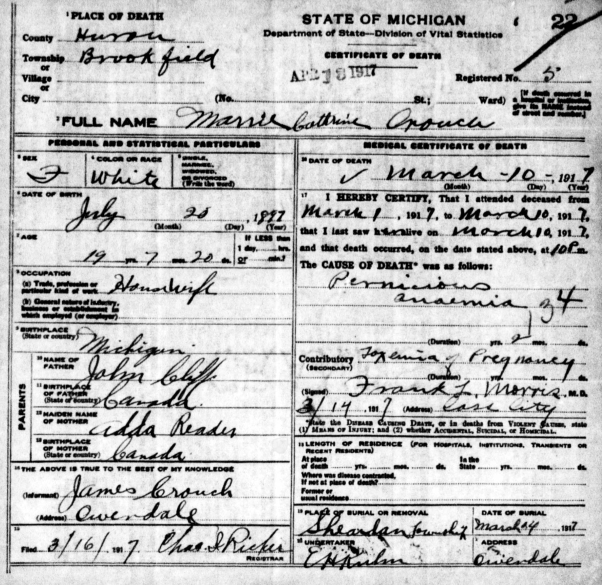 STATE OF MICHIGAN
Department of State—Division of Vital Statistics
CERTIFICATE OF DEATH
22
¹PLACE OF DEATH
County Huron
Township Brookfield
or
Village
or
City (No. St.; Ward)
APR 13 1917
Registered No. 5
[If death occurred in a hospital or institution, give its NAME instead of street and number.]
²FULL NAME Marrie Cathrine Crouch
PERSONAL AND STATISTICAL PARTICULARS
³SEX F
⁴COLOR OR RACE White
⁵SINGLE, MARRIED, WIDOWED, OR DIVORCED (Write the word)
⁶DATE OF BIRTH
July 20, 1897
(Month) (Day) (Year)
⁷AGE
19 yrs. 7 mos. 20 ds.
If LESS than 1 day, hrs. or min.?
⁸OCCUPATION
(a) Trade, profession or particular kind of work Housewife
(b) General nature of industry, business or establishment in which employed (or employer)
⁹BIRTHPLACE
(State or country) Michigan
PARENTS
¹⁰NAME OF FATHER John Cliff
¹¹BIRTHPLACE OF FATHER
(State or country) Canada
¹²MAIDEN NAME OF MOTHER Adda Reader
¹³BIRTHPLACE OF MOTHER
(State or country) Canada
¹⁴THE ABOVE IS TRUE TO THE BEST OF MY KNOWLEDGE
(Informant) James Crouch
(Address) Owendale
¹⁵
Filed 3/16/, 1917 Chas D Ricker
REGISTRAR
MEDICAL CERTIFICATE OF DEATH
¹⁶DATE OF DEATH
March -10-, 1917
(Month) (Day) (Year)
¹⁷I HEREBY CERTIFY, That I attended deceased from
March 1, 1917, to March 10, 1917,
that I last saw her alive on March 10, 1917,
and that death occurred, on the date stated above, at 10 P.m.
The CAUSE OF DEATH* was as follows:
Pernicious
anaemia 34
(Duration) yrs. 2 mos. ds.
Contributory Toxemia of Pregnancy
(SECONDARY)
(Duration) yrs. mos. ds.
(Signed) Frank L. Morris, M.D.
3/14, 1917 (Address) Cass City
*State the DISEASE CAUSING DEATH, or in deaths from VIOLENT CAUSES, state (1) MEANS OF INJURY; and (2) whether ACCIDENTAL, SUICIDAL, or HOMICIDAL.
¹⁸LENGTH OF RESIDENCE (FOR HOSPITALS, INSTITUTIONS, TRANSIENTS OR RECENT RESIDENTS)
At place of death yrs. mos. ds. In the State yrs. mos. ds.
Where was disease contracted, if not at place of death?
Former or usual residence
¹⁹PLACE OF BURIAL OR REMOVAL
Sheridan Township
DATE OF BURIAL
March 14 1917
²⁰UNDERTAKER
ADDRESS
Owendale